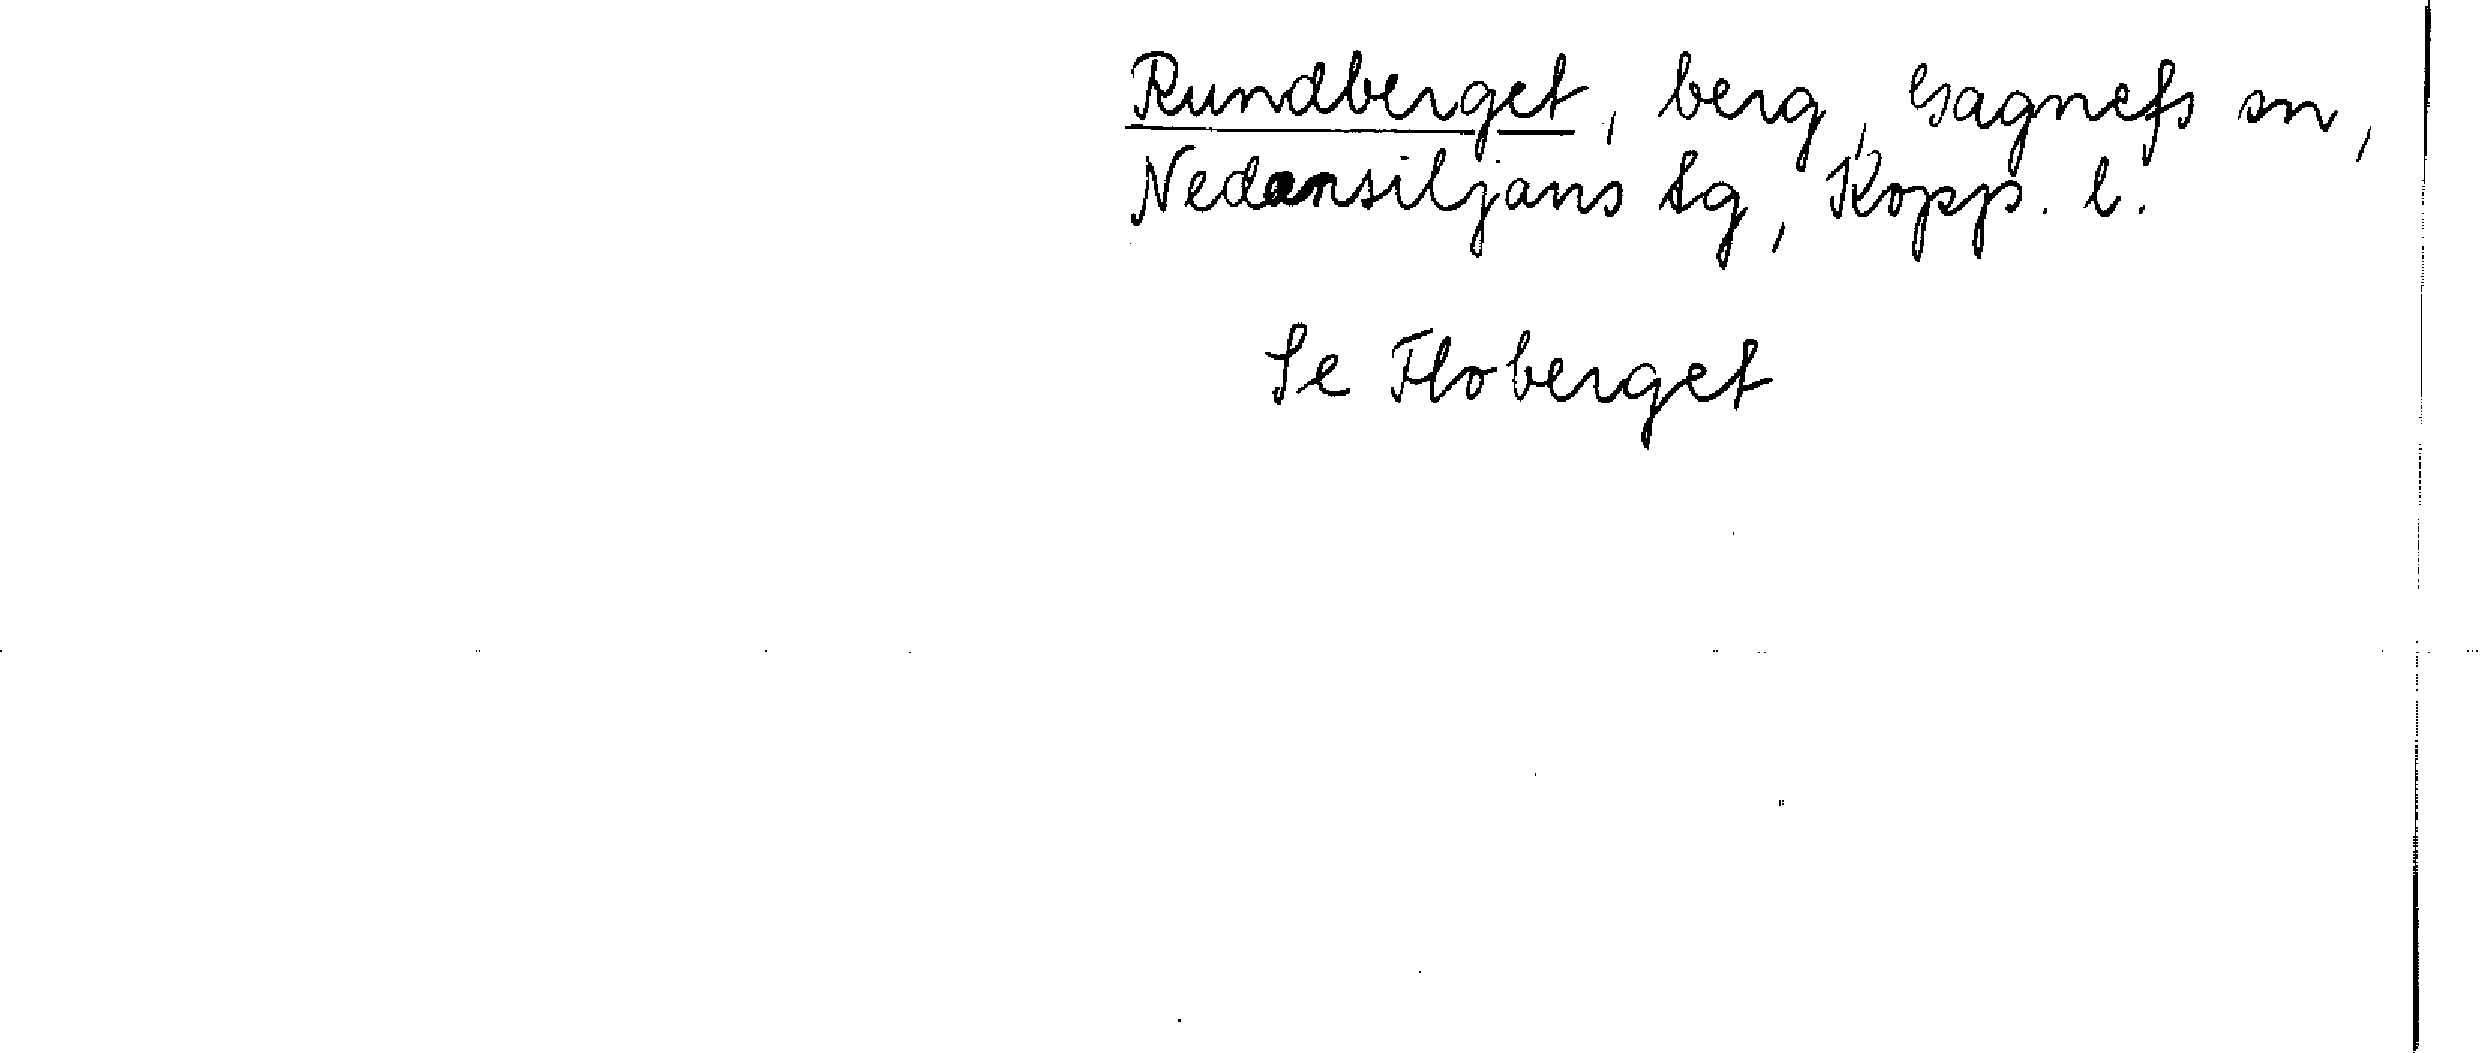 Rundberget, berg, Gagnefs sn,
Nedansiljans tg, Kopp. l.
Se Floberget